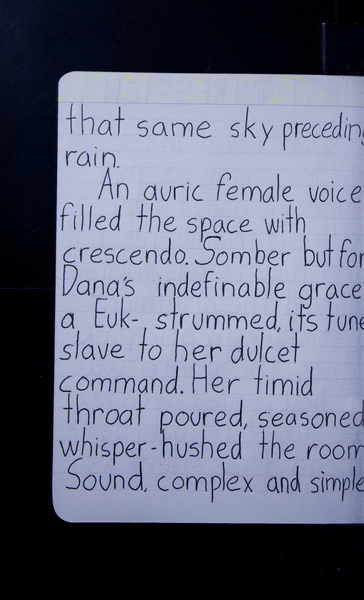 that same sky preceding
rain.
An auric female voice
filled the space with
crescendo. Somber but for
Dana's indefinable grace
a Euk-, strummed, its tune
slave to her dulcet
command. Her timid
throat poured, seasoned
whisper-hushed the room
Sound, complex and simple